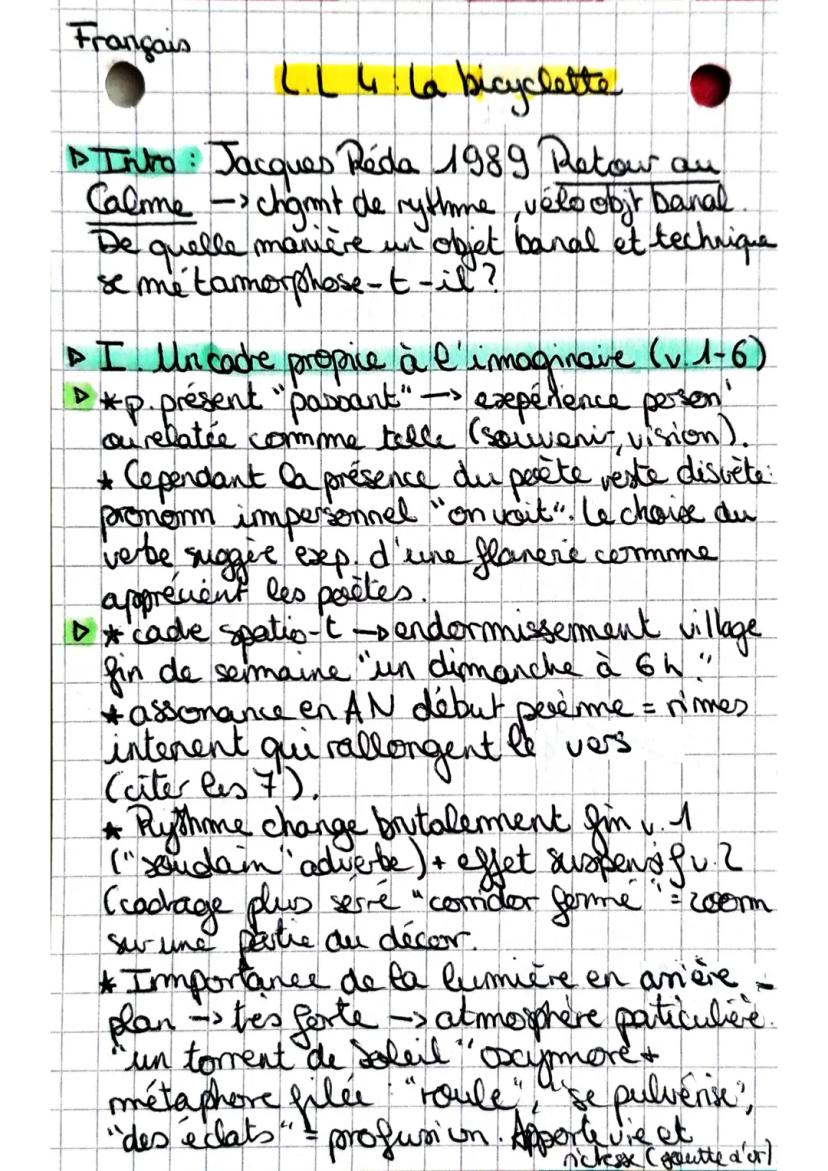 Français
L.L 4 : la bicyclette
▷ Intro : Jacques Réda 1989 Retour au
Calme -> chgmt de rythme, vélo objt banal.
De quelle manière un objet banal et technique
se métamorphose-t-il ?
▷ I. Un cadre propice à l'imaginaire (v.1-6)
▷ * p. présent "passant" -> expérience person'
ou relatée comme telle (souvenir, vision).
* Cependant la présence du poète reste discrète :
pronom impersonnel "on voit". Le choix du
verbe suggère exp. d'une flanerie comme
apprécient les poètes.
▷ * cadre spatio-t -> endormissement village
fin de semaine "un dimanche à 6h".
* assonance en AN début poème = rimes
internent qui rallongent le vers
(citer les 7).
* Rythme change brutalement fin v.1
("soudain" adverbe) + effet suspensif v.2
(cadrage plus serré "corridor fermé" = zoom
sur une partie du décor.
* Importance de la lumière en arrière -
plan -> très forte -> atmosphère particulière.
"un torrent de soleil" oxymore +
métaphore filée : "roule", "se pulvérise",
"des éclats" = profusion. Apporte vie et
richesse (goutte d'or)